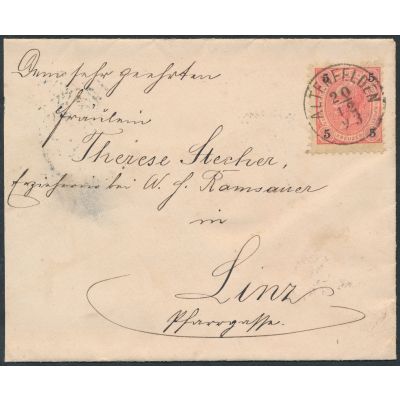 5 5
ALTENFELDEN
20
12
93
KREUZER
5 5
Dem sehr geehrten
Fräulein
Therese Stecher,
Erzieherin bei W. H. Ramsauer
in
Linz
Pfarrgasse.